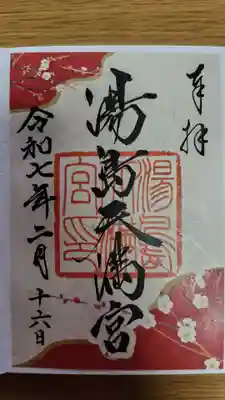 奉拝
湯島天満宮
令和七年二月
十六日